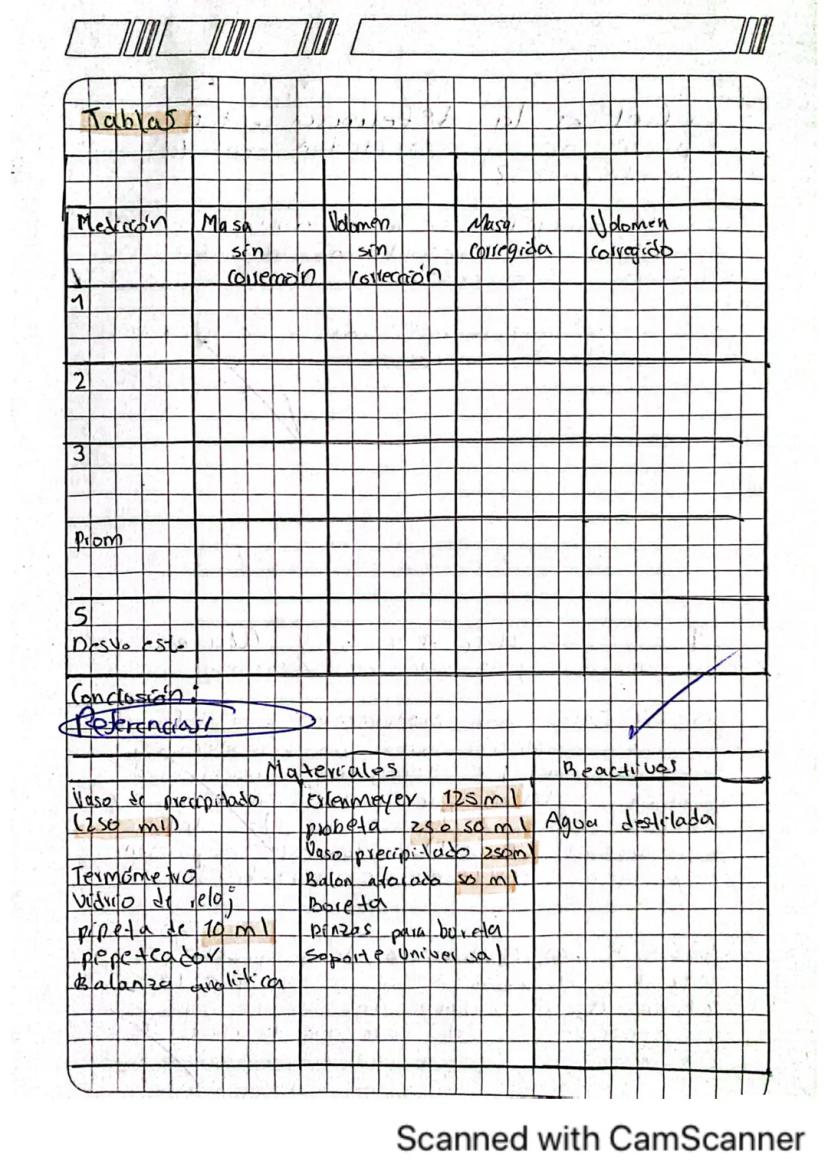 Tablas:
Medición Masa Volumen Masa Volumen
sin sin corregida corregido
corrección corrección
1
2
3
Prom
S
Desv. est.
Conclusión:
Referencias/
Materiales Reactivos
Vaso de precipitado Erlenmeyer 125 ml
(250 ml) probeta 25 o 50 ml Agua destilada
Vaso precipitado 250ml
Termómetro Balon aforado 50 ml
Vidrio de reloj Bureta
pipeta de 10 ml pinzas para bureta
pepeteador Soporte Universal
Balanza analítica
Scanned with CamScanner